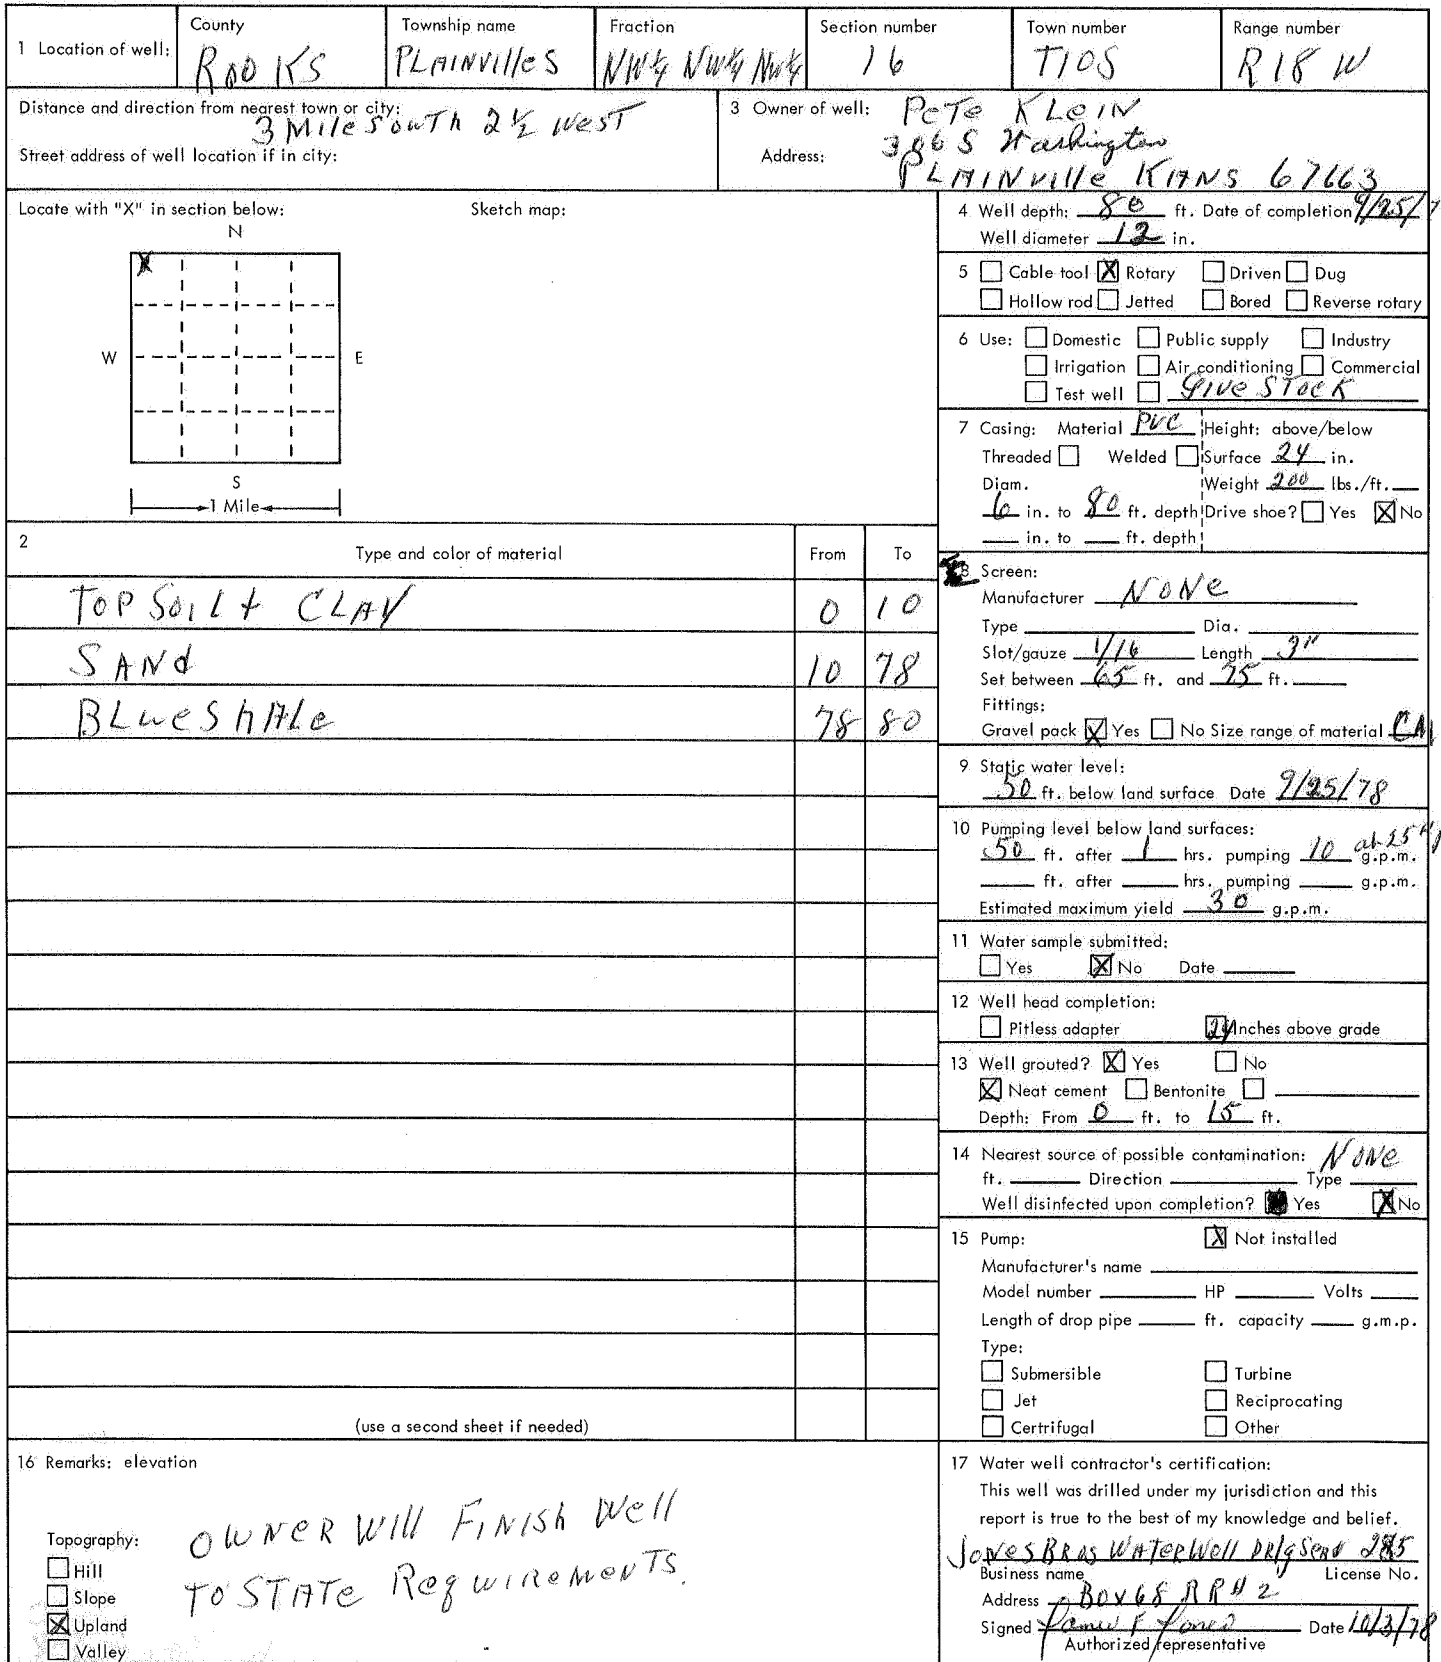 1 Location of well:
County
Rooks
Township name
PLAINVILLES
Fraction
NW¼ NW¼ NW¼
Section number
16
Town number
T10S
Range number
R18 W
Distance and direction from nearest town or city:
3 Mile South 2½ West
Street address of well location if in city:
3 Owner of well: Pete Klein
Address: 306 S Washington
PLAINVille KANS 67663
Locate with "X" in section below:
Sketch map:
N
X
W E
S
1 Mile
4 Well depth: 80 ft. Date of completion 9/25/7
Well diameter 12 in.
5 Cable tool X Rotary Driven Dug
Hollow rod Jetted Bored Reverse rotary
6 Use: Domestic Public supply Industry
Irrigation Air conditioning Commercial
Test well LIVE STOCK
7 Casing: Material PVC Height: above/below
Threaded Welded Surface 24 in.
Diam. Weight 200 lbs./ft.
6 in. to 80 ft. depth Drive shoe? Yes X No
in. to ft. depth
2 Type and color of material From To
TOP SOIL + CLAY 0 10
SAND 10 78
BLUE SHALE 78 80
(use a second sheet if needed)
8 Screen:
Manufacturer NONE
Type Dia.
Slot/gauze 1/16 Length 3"
Set between 65 ft. and 75 ft.
Fittings:
Gravel pack X Yes No Size range of material
9 Static water level:
50 ft. below land surface Date 9/25/78
10 Pumping level below land surfaces:
50 ft. after 1 hrs. pumping 10 g.p.m.
ft. after hrs. pumping g.p.m.
Estimated maximum yield 30 g.p.m.
11 Water sample submitted:
Yes X No Date
12 Well head completion:
Pitless adapter 24 Inches above grade
13 Well grouted? X Yes No
X Neat cement Bentonite
Depth: From 0 ft. to 15 ft.
14 Nearest source of possible contamination: NONE
ft. Direction Type
Well disinfected upon completion? Yes X No
15 Pump: X Not installed
Manufacturer's name
Model number HP Volts
Length of drop pipe ft. capacity g.m.p.
Type:
Submersible Turbine
Jet Reciprocating
Certrifugal Other
16 Remarks: elevation
OWNER WILL FINISH Well
TO STATE REQUIREMENTS.
Topography:
Hill
Slope
X Upland
Valley
17 Water well contractor's certification:
This well was drilled under my jurisdiction and this
report is true to the best of my knowledge and belief.
Jones Bros Water Well Drlg Serv
Business name License No.
Address Box 68 RR # 2
Signed James F Jones Date 10/3/78
Authorized representative